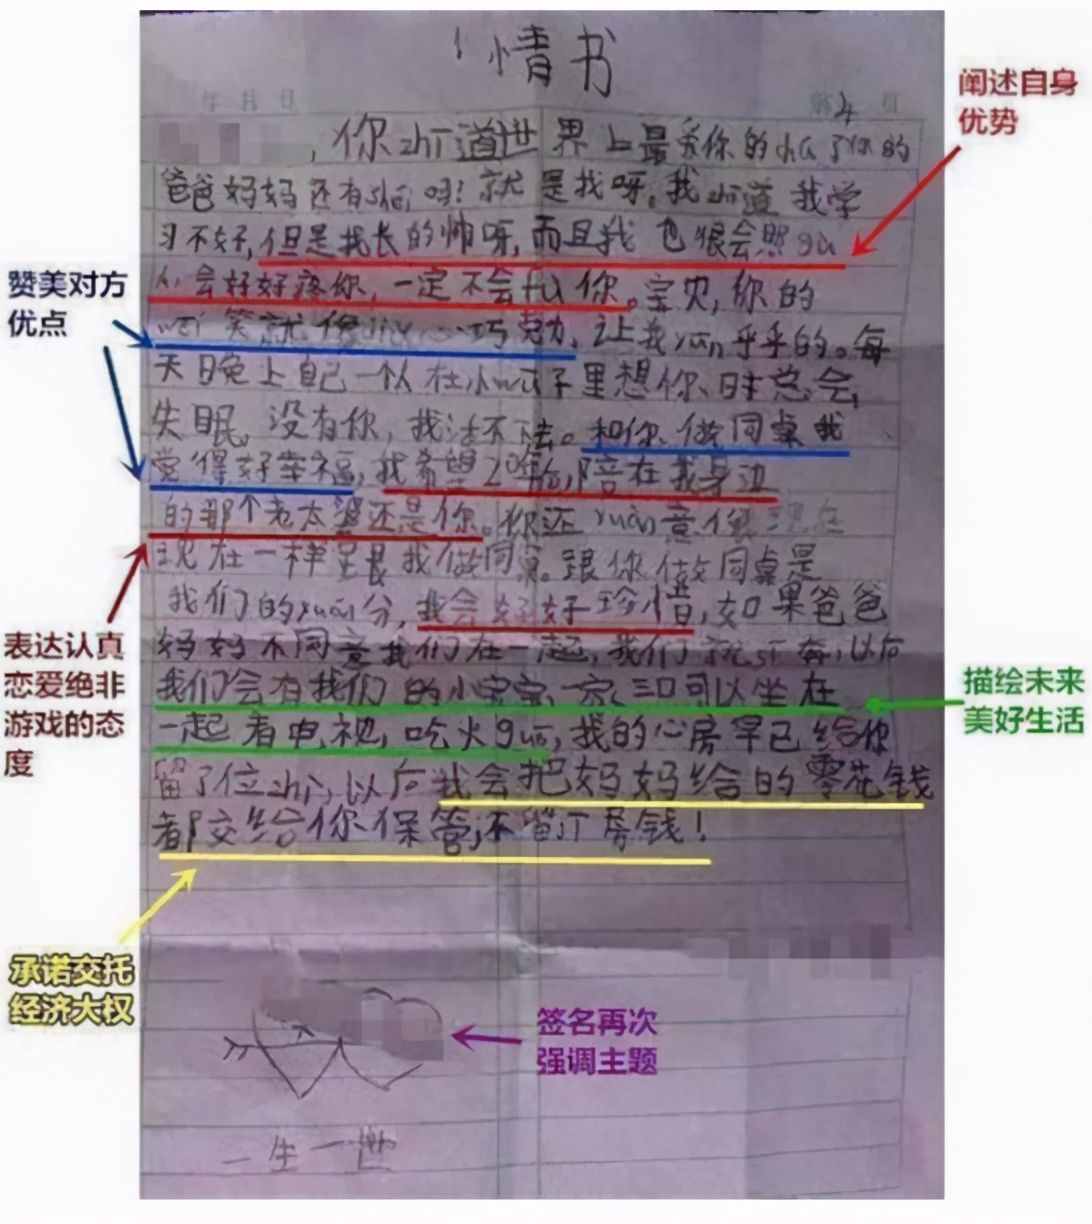 情书
年 月 日
,你zhi道世界上最爱你的chu了你的
爸爸妈妈还有shei吗!就是我呀。我zhi道我学
习不好,但是我长的帅呀,而且我也很会照gu
人,会好好疼你,一定不会fu你。宝贝,你的
wei笑就像 巧克力,让我 乎乎的。每
天晚上自己一个人在小 子里想你时总会
失眠,没有你,我活不下去。和你做同桌我
觉得好幸福,我希望20年后,陪在我身边
的那个老太婆还是你。你还yuan意像现在
现在一样 我做同桌。跟你做同桌是
我们的yuan分,我会好好珍惜,如果爸爸
妈妈不同意我们在一起,我们就si奔,以后
我们会有我们的小宝宝,一家三口可以坐在
一起看电视,吃火guo,我的心房早已给你
留了位zhi,以后我会把妈妈给的零花钱
都交给你保管,不留 房钱!
一生一世
阐述自身
优势
赞美对方
优点
表达认真
恋爱绝非
游戏的态
度
描绘未来
美好生活
承诺交托
经济大权
签名再次
强调主题